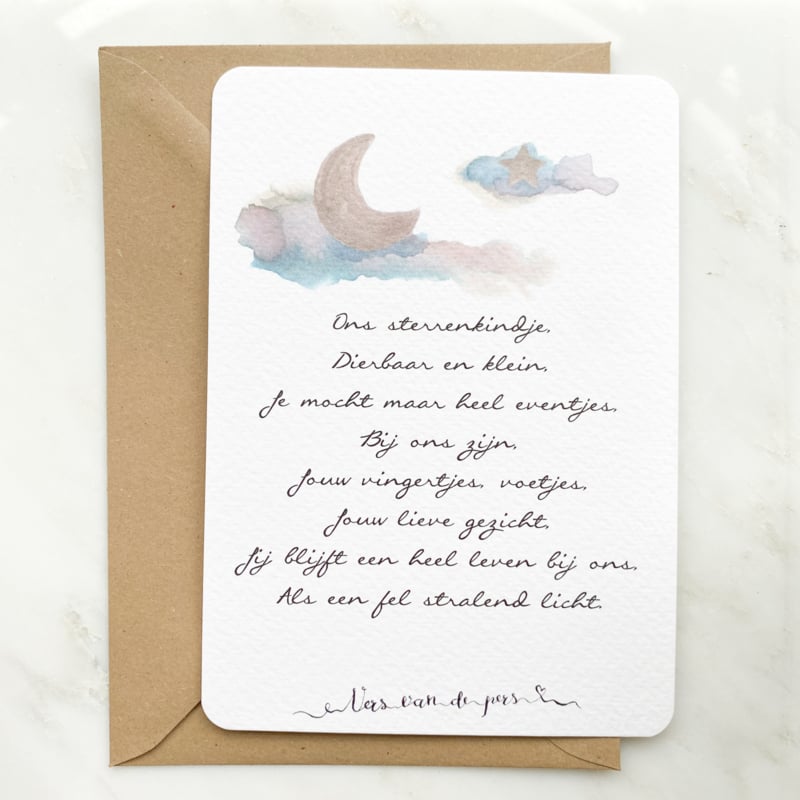 Ons sterrenkindje,
Dierbaar en klein,
Je mocht maar heel eventjes,
Bij ons zijn,
Jouw vingertjes, voetjes,
Jouw lieve gezicht,
Jij blijft een heel leven bij ons,
Als een fel stralend licht.
Vers van de pers